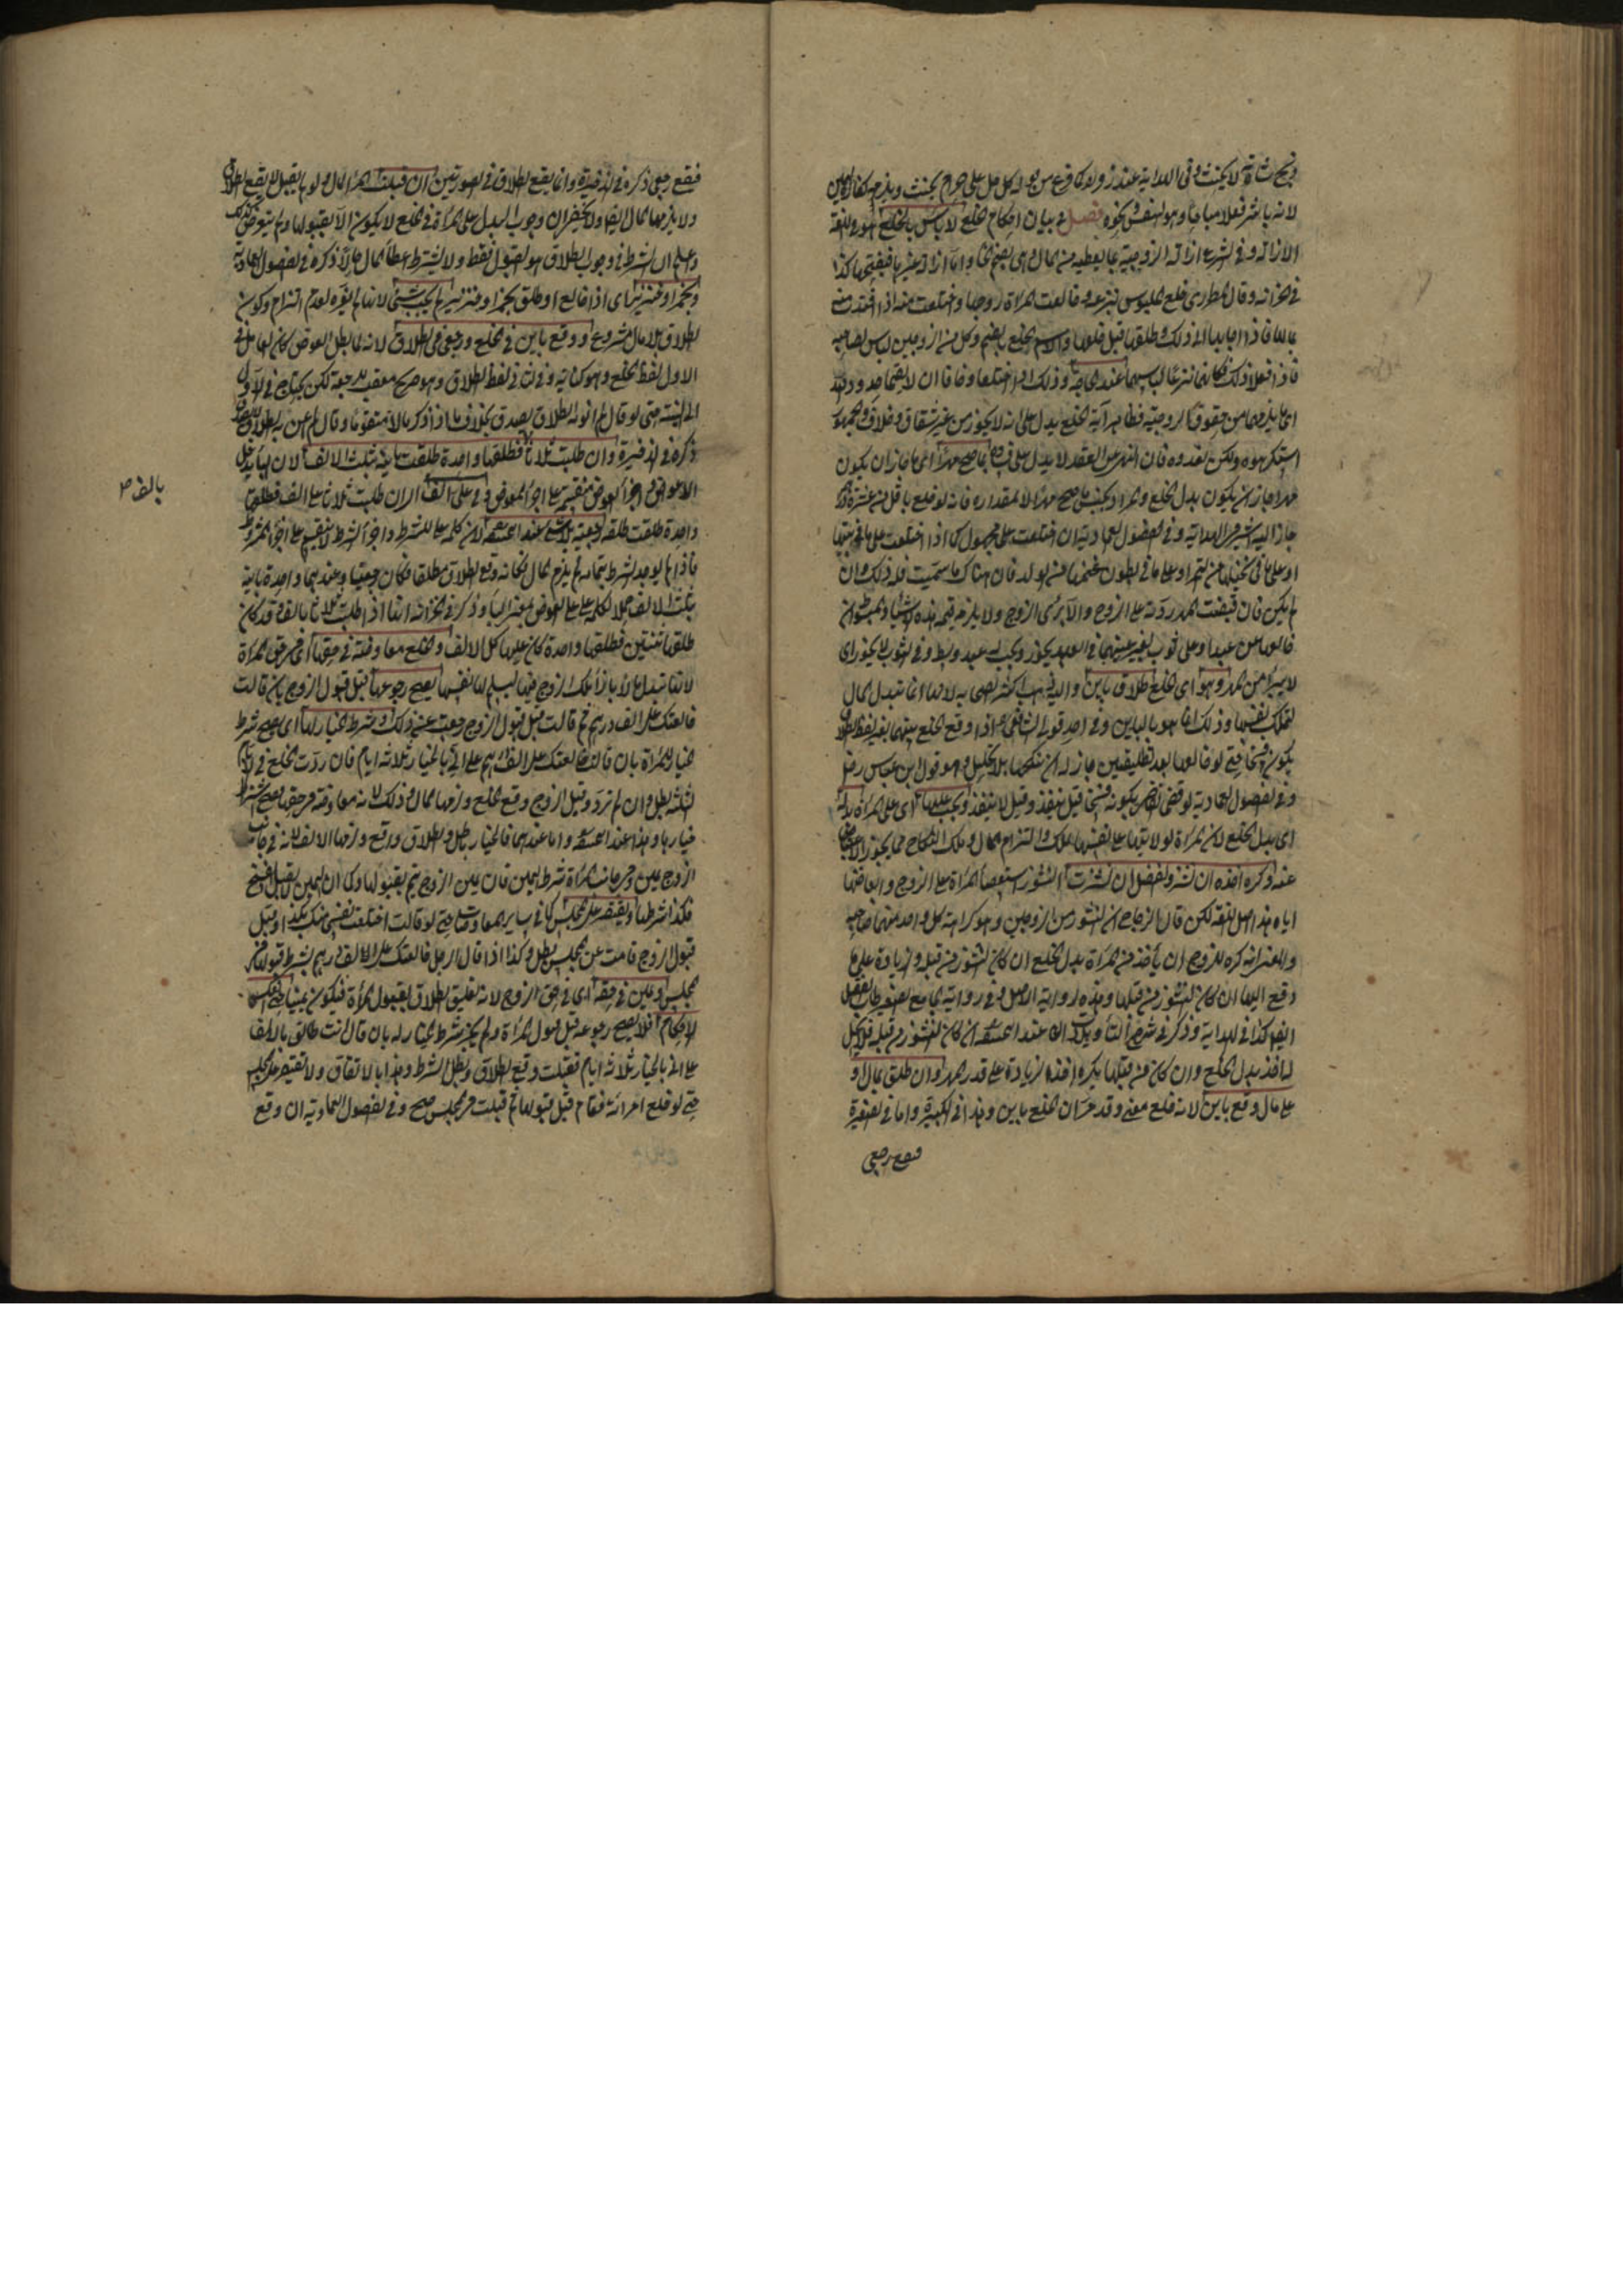 لا يحنث وفي الهداية عند زفر ولو كان قد قال كل حل علي حرام يحنث ويلزم كفارة اليمين
لانه باشر فعلا مباحا وهو التنفس ونحوه فصل في بيان احكام الخلع لا باس بالخلع هو في اللغة
الازالة وفي الشرع ازالة الزوجية بما يعطيه من المال وهي بضم الخاء واما ازالة غيرها فبفتحها كذا
في الخزانة وقال المطرزي خلع الملبوس نزعه وخالعت المراة زوجها واختلعت منه اذا افتدت منه
بمالها فاذا اجابها الى ذلك وطلقها قيل خلعها والاسم الخلع بالضم وكل من الزوجين لباس لصاحبه
فاذا فعلا ذلك فكانما نزعا لباسهما عند الحاجة وذلك اذا اختلعا وخافا ان لا يقيما حدود الله
اي ما يلزمهما من حقوق الزوجية فظاهر آية الخلع يدل على انه لا يجوز من غير شقاق وخلاف والجمهور
استكرهوه ولكن نفذوه فان النهي عن العقد لا يدل على فساده بما صح مهرا اي ما جاز ان يكون
مهرا جاز ان يكون بدل الخلع والمراد بجنس ما صح مهرا لا بمقداره فانه لو خلع باقل من عشرة دراهم
جاز اليه اشير في الهداية وفي الفصول العمادية ان اختلعت على مجهول كما اذا اختلعت على ما في بيتها
او على ما في نخيلها من الثمر او على ما في بطون غنمها من الولد فان هناك ما سميت فله ذلك وان
لم يكن فان قبضت المهر ردته على الزوج والا برئ الزوج ولا يلزم قيمة هذه الاشياء
خالعها على عبد او على ثوب بغير عينهما في العبد يجوز ويجب له عبد وسط وفي الثوب لا يجوز اي
لا يبرا من المهر وهو اي الخلع طلاق باين
لتملك نفسها وذلك انما هو بالباين وفي احد قولي الشافعي اذا وقع الخلع بينهما بغير لفظ الطلاق
يكون فسخا حتى لو خالعها بعد تطليقتين جاز له ان ينكحها بلا تحليل وهو قول ابن عباس رضي
وفي الفصول العمادية لو قضى القاضي بكونه فسخا قيل ينفذ وقيل لا ينفذ ويجب عليها اي على المراة بدله
اي بدل الخلع لان المراة لولايتها على نفسها تملك التزام المال وملك النكاح مما يجوز الاعتياض
عنه وكره اخذه ان نشز والفضل ان نشزت النشوز استعصاء المراة على الزوج وابغاضها
اياه هذا اصل اللغة لكن قال الزجاج ان النشوز من الزوجين وهو كراهة كل واحد منهما صاحبه
والمعنى انه كره للزوج ان ياخذ من المراة بدل الخلع ان كان النشوز من قبله والزيادة على ما
دفع اليها ان كان النشوز من قبلها وهذه رواية الاصل وفي رواية الجامع الصغير طاب الفضل
ايضا كذا في الهداية وذكر في شرح التاويلات
له اخذ بدل الخلع وان كان من قبلها يكره اخذه الزيادة على قدر المهر وان طلق بمال او
على مال وقع باين لانه خلع معنى وقد مر ان الخلع باين وهذا في الكبيرة واما في الصغيرة
فيقع رجعي
فيقع رجعي ذكره في الذخيرة وانما يقع الطلاق في الصورتين ان قبلت المراة المال ولو لم يقبل لا يقع الطلاق
ولا يلزمها المال ايضا ولا يخفى ان وجوب البدل على المراة في الخلع لا يكون الا بقبولها ولم يتعرض لذلك
وعلم ان الشرط في وجوب الطلاق هو القبول فقط ولا يشترط اعطاء المال حالا ذكره في الفصول العمادية
وبخمر او خنزير اي اذا خالع او طلق بخمر او خنزير لم يجب شئ لانها لم تغره لعدم التزام وكون
الطلاق بلا مال مشروع ووقع باين في الخلع ورجعي في الطلاق لانه لما بطل العوض كان العامل في
الاول لفظ الخلع وهو كناية وفي الثاني لفظ الطلاق وهو صريح معقب للرجعة لكن يحتاج في الاول
الى النية حتى لو قال لم انو به الطلاق يصدق بخلاف ما اذا ذكر مالا متقوما وقال لم اعن به الطلاق
ذكره في الذخيرة وان طلبت ثلاثا فطلقها واحدة طلقت باينة بثلث الالف لان الباء يدخل
الاعواض واجزاء العوض منقسمة على اجزاء المعوض وفي على الف اي ان طلبت ثلاثا على الف فطلقها
واحدة طلقت طلقة رجعية بلا شئ عند ابي حنيفة لان كلمة على للشرط واجزاء الشرط لا ينقسم على اجزاء المشروط
فاذا لم يوجد الشرط بتمامه لم يلزم المال فكانه وقع الطلاق مطلقا فكان رجعيا وعندهما واحدة باينة
بثلث الالف حملا لكلمة على على العوض بمعنى الباء وذكر في الخزانة انها اذا طلبت ثلاثا بالف وقد كان
طلقها ثنتين فطلقها واحدة كان عليها كل الالف والخلع معاوضة في حقها اي في حق المراة
لانها تبذل مالا بازاء ملك الزوج فيها ليسلم لها نفسها يصح رجوعها قبل قبول الزوج بان قالت
خالعتك على الف درهم ثم قالت قبل قبول الزوج رجعت عن ذلك وشرط الخيار لها اي يصح شرط
الخيار للمراة بان قال خالعتك على الف درهم على اني بالخيار ثلاثة ايام فان ردت الخلع في الايام
الثلثة بطل وان لم ترد وقبل الزوج وقع الخلع ولزمها المال وذلك لانه معاوضة في حقها فيصح اشتراط
خيارها وهذا عند ابي حنيفة واما عندهما فالخيار باطل والطلاق واقع ولزمها الالف لانه في جانب
الزوج يمين وجانب المراة شرط اليمين فان يمين الزوج يتم بقبولها وكما ان اليمين لا يقبل الفسخ
فكذا شرطها ويقتصر على المجلس كما في ساير المعاوضات حتى لو قالت اختلعت نفسي منك بكذا وقبل
قبول الزوج قامت عن المجلس بطل وكذا اذا قال الرجل خالعتك على الالف درهم يشترط قبولها في
المجلس ويمين في حقه اي في حق الزوج لانه تعليق الطلاق بقبول المراة فيكون يمينا حتى انعكس
الاحكام فلا يصح رجوعه قبل قبول المراة ولم يجز شرط الخيار له بان قال انت طالق بالالف
على اني بالخيار ثلاثة ايام فقبلت وقع الطلاق وبطل الشرط وهذا بالاتفاق ولا تقتصر على المجلس
حتى لو خلع امراته فقام قبل قبولها ثم قبلت في المجلس صح وفي الفصول العمادية ان وقع
بالف